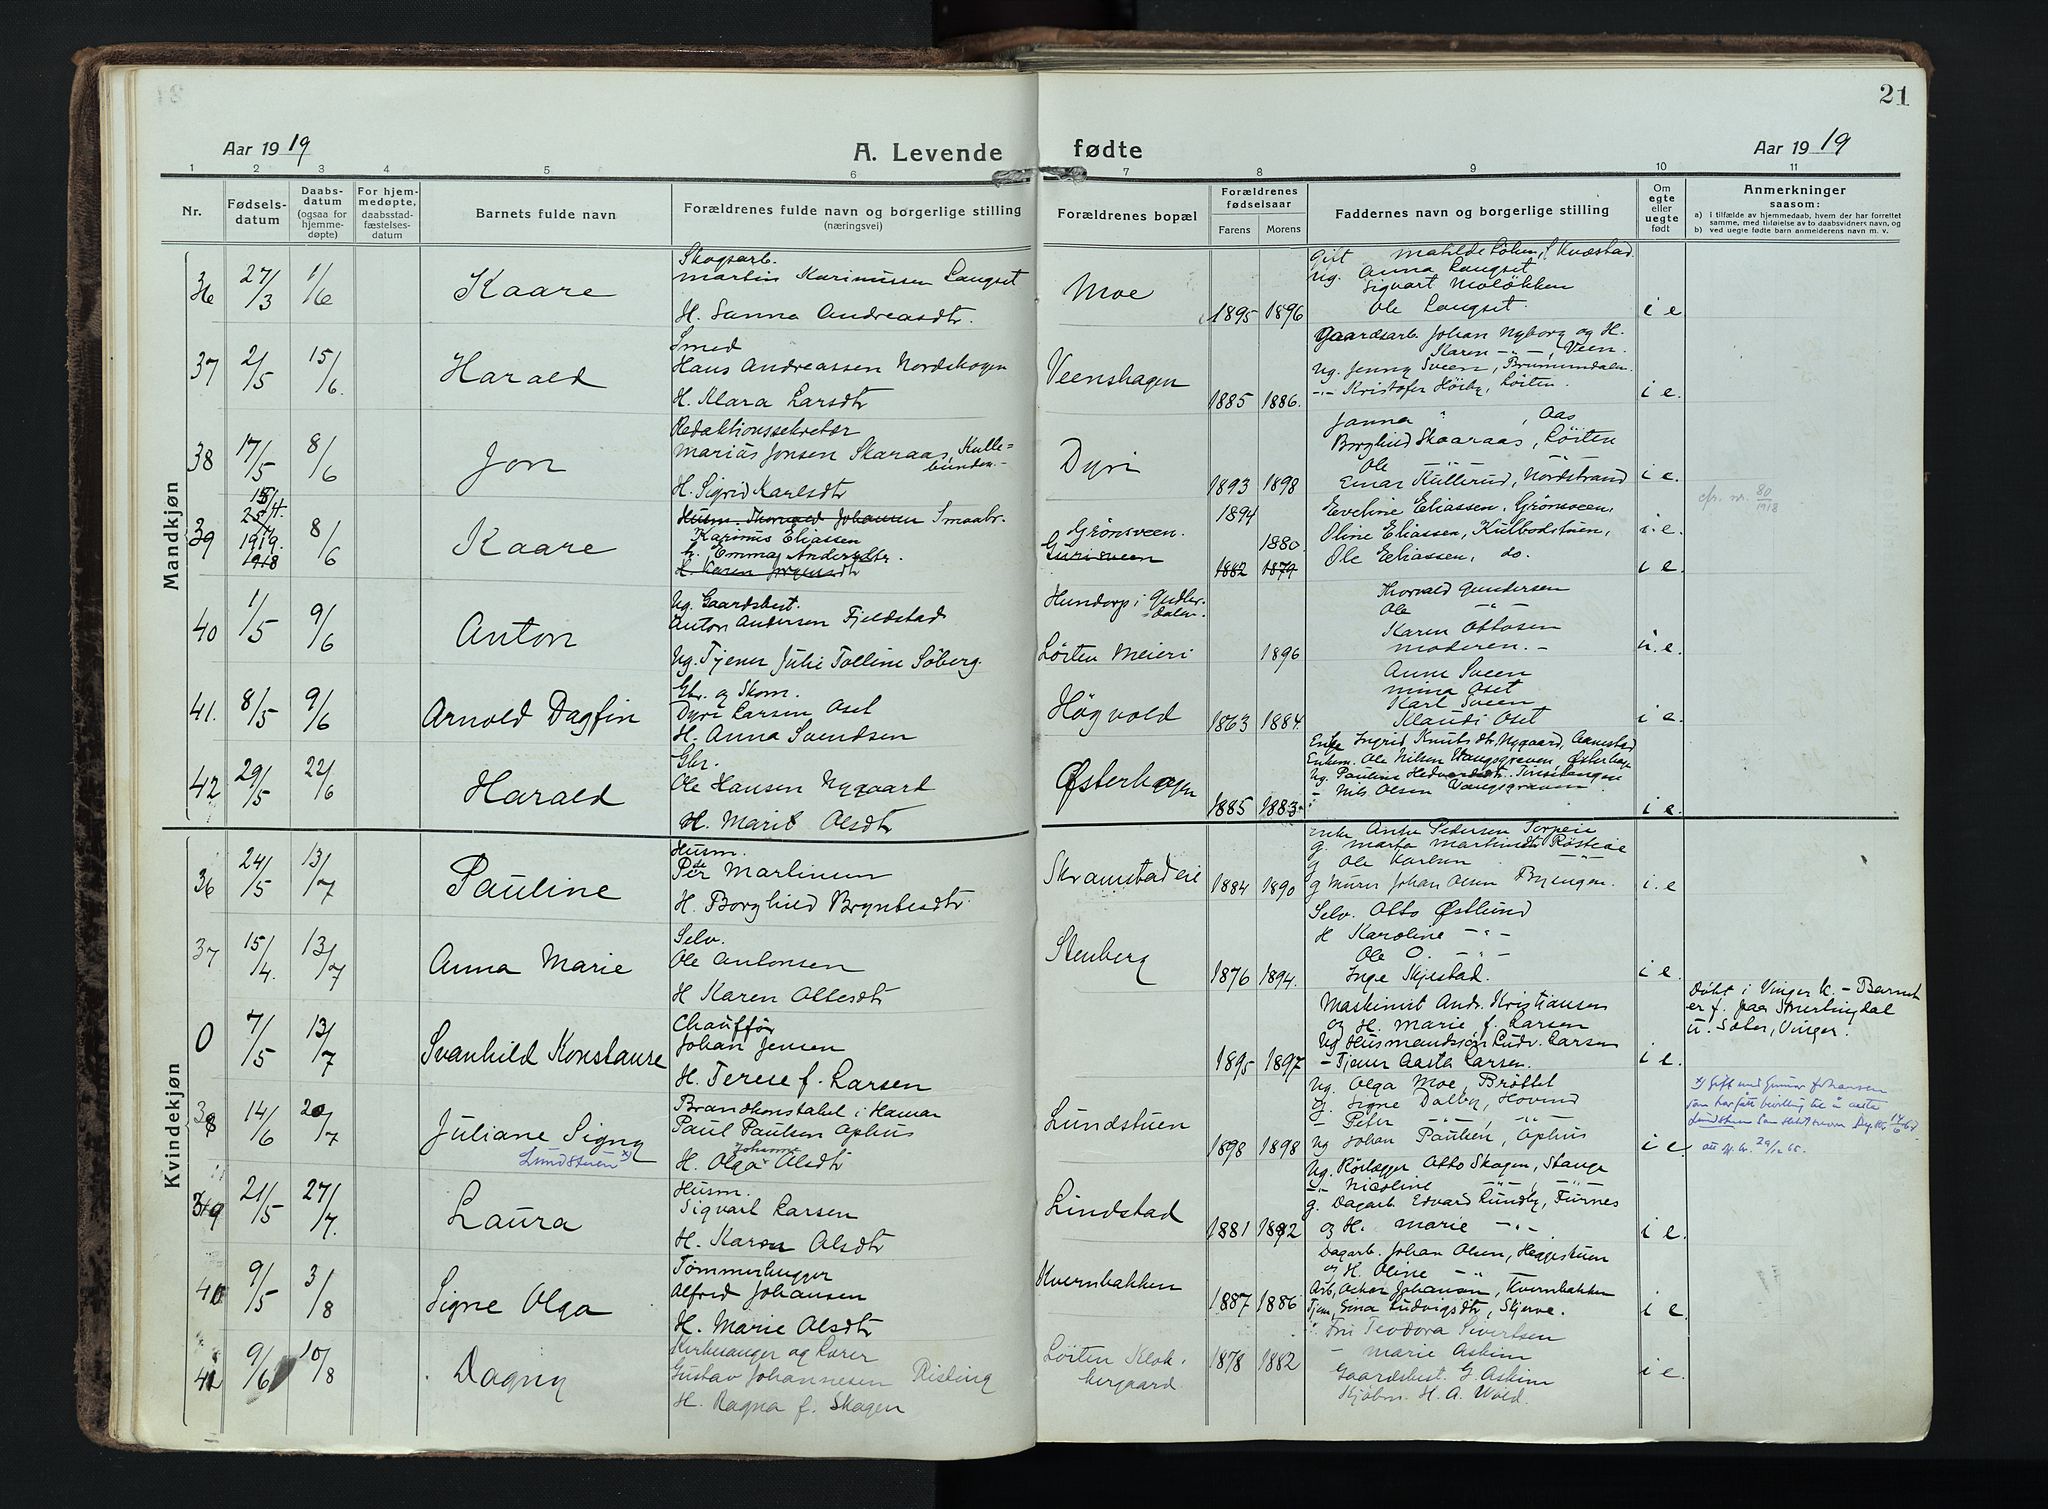 21
Aar 1919
A. Levende fødte
Aar 1919
1 2 3 4 5 6 7 8 9 10 11
Nr.
Fødsels-
datum
Daabs-
datum
(ogsaa for
hjemme-
døpte)
For hjem-
medøpte,
daabsstad-
fæstelses-
datum
Barnets fulde navn
Forældrenes fulde navn og borgerlige stilling
(næringsvei)
Forældrenes bopæl
Forældrenes
fødselsaar
Farens Morens
Faddernes navn og borgerlige stilling
Om
egte
eller
uegte
født
Anmerkninger
saasom:
a) i tilfælde av hjemmedaab, hvem der har forrettet
samme, med tilføielse av to daabsvidners navn, og
b) ved uegte fødte barn anmelderens navn m. v.
Mandkjøn
36 27/3 1/6 Kaare
Skogsarb.
Martin Karinussen Langset
H. Sanna Andreasdtr.
Moe 1895 1896
Gift Mathilde Løken,
Ug. Anna Langset
Sigvart Moløkken
Ole Langset
i e
37 2/5 15/6. Harald
Smed
Hans Andreassen Nordskogen
H. Klara Larsdtr
Veenshagen 1885 1886.
Gaardsarb. Johan Nyborg og H.
Karen -"-, Veen.
Ug. Jenny Sveen, Brumunddalen.
-"- Kristofer Høiby, Løiten.
i e.
38 17/5 8/6 Jon
Redaktionssekretær
Marius Jonsen Skaraas, Kulle=
bunden.-
H. Sigrid Karlsdtr
Dyri 1893 1898
Janna " , Aas
Borghild Skaaraas, Løiten
Ole -"- -"-
Einar Kullerud, Nordstrand
i e.
39 15/4. 1919. 1918 8/6 Kaare
Husm. Thorvald Johansen Smaabr.
Karinus Eliassen
G. Emma Andersdtr.
H. Karen Jørgensdtr
Grønsveen.
Gurisveen
1894 1880.
1882 1879
Eveline Eliassen, Grønsveen,
Oline Eliassen, Kulbodstuen,
Ole Eliassen, do.
i.e.
i e.
cfr. nr. 80/1918
40 1/5 9/6 Anton
Ug. Gaardsbest.
Anton Andersen Fjeldstad
Ug. Tjener Julie Tolline Søberg.
Hundorp i Gudbr.
dalen.
Løiten Meieri 1896
Thorvald Gundersen
Ole -"-
Karen Ottosen
Moderen.-
u.e.
41. 8/5 9/6 Arnold Dagfin
Gbr. og Skom.
Dyre Larsen Aset
H. Anna Svendsen
Høgvold 1863 1884.
Anne Sveen
Mina Aset
Karl Sveen
Klaudi Aset
i e.
42 29/5 22/6 Harald
Gbr.
Ole Hansen Nygaard
H. Marit Olsdtr
Østerhagen 1885 1883
Enke Ingrid Knutsdtr, Nygaard, Aamstad
Enkem. Ole Nilsen Vangsgreven, Østerhag
Ug. Pauline
- Nils Olsen
i e.
Kvindekjøn
36 24/5 13/7 Pauline
Husm.
Peder Martinsen
H. Borghild Bryntesdtr.
Skramstadeie 1884 1890
Enke Anne Pedersen Torpeie
g. Marta Martinsdtr Røsteie
g Ole Karlsen -"-
g Murer Johan Olsen Byengen.
i.e
37 15/4. 13/7 Anna Marie
Selv.
Ole Antonsen
H Karen Ottesdtr
Stenberg 1876 1894.
Selv. Otto Østlund
H Karoline -"-
Ole O. -"-
Inge Skjestad.
i e.
0 7/5 13/7 Svanhild Konstanse
Chauffør
Johan Jensen
H. Terese f. Larsen
1895 1897
Maskinist Andr. Kristiansen
og H. Marie, f. Larsen
Ug Husmandssøn Ludv. Larsen
- Tjener Aasta Larsen.
i e.
Døbt i Vinger K. - Barnet
er f. paa Smertingdal
u. Soler, Vinger.
38 14/6 20/7 Juliane Signy
Lundstuen x)
Brandkonstabel i Hamar
Paul Paulsen Ophus
Johanne
H. Olga Olsdtr
Lundstuen 1898 1898
Ug. Olga Moe, Brøttet
g. Signe Dalby, Hovind
- Peter -"-, -"-
Ug Johan Paulsen, Ophus
i e
x) Gift med Gunnar Johansen
som har fått bevilling til å anta
Lundstuen som slektsnavn
39 21/5 27/7. Laura
Husm.
Sigvart Larsen
H. Karen Olsdtr
Lindstad 1881 1892
Ug. Rørlægger Otto Skogen, Stange
-"- Nicoline -"- , -"-
g. Dagarb. Edvard Lundby, Furnes
og H. Marie -"-
i e.
40 9/5 3/8 Signe Olga
Tømmerhugger
Alfred Johansen
H. Marie Olsdtr
Kvernbakken 1887 1886
Dagarb. Johan Olsen, Heggestuen
og H. Oline -"-
Arb. Oskar Johansen, Kvernbakken
Tjen. Gina Ludvigsdtr, Skjerve.
i e.
41 9/6 10/8 Dagny
Kirkesanger og Lærer
Gustav Johannesen Risting
H. Ragna f. Skogen
Løiten Klok-
kergaard. 1878 1882
Fru Teodora Sivertsen
- Marie Askim
Gaardsbest. G. Askim
Kjøbm. H. A. Wold.
i e.